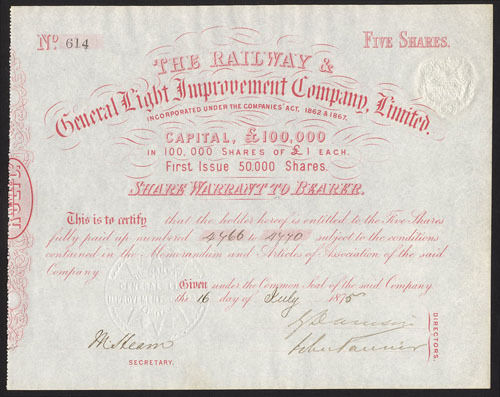 No. 614
FIVE SHARES.
THE RAILWAY &
General Light Improvement Company, Limited.
INCORPORATED UNDER THE COMPANIES' ACT, 1862 & 1867.
CAPITAL, £100,000
IN 100,000 SHARES OF £1 EACH.
First Issue 50,000 Shares.
SHARE WARRANT TO BEARER.
This is to certify that the holder hereof is entitled to the Five Shares
fully paid up numbered 4766 to 4770 subject to the conditions
contained in the Memorandum and Articles of Association of the said
Company
Given under the Common Seal of the said Company
this 16 day of July 1875
SECRETARY.
DIRECTORS.